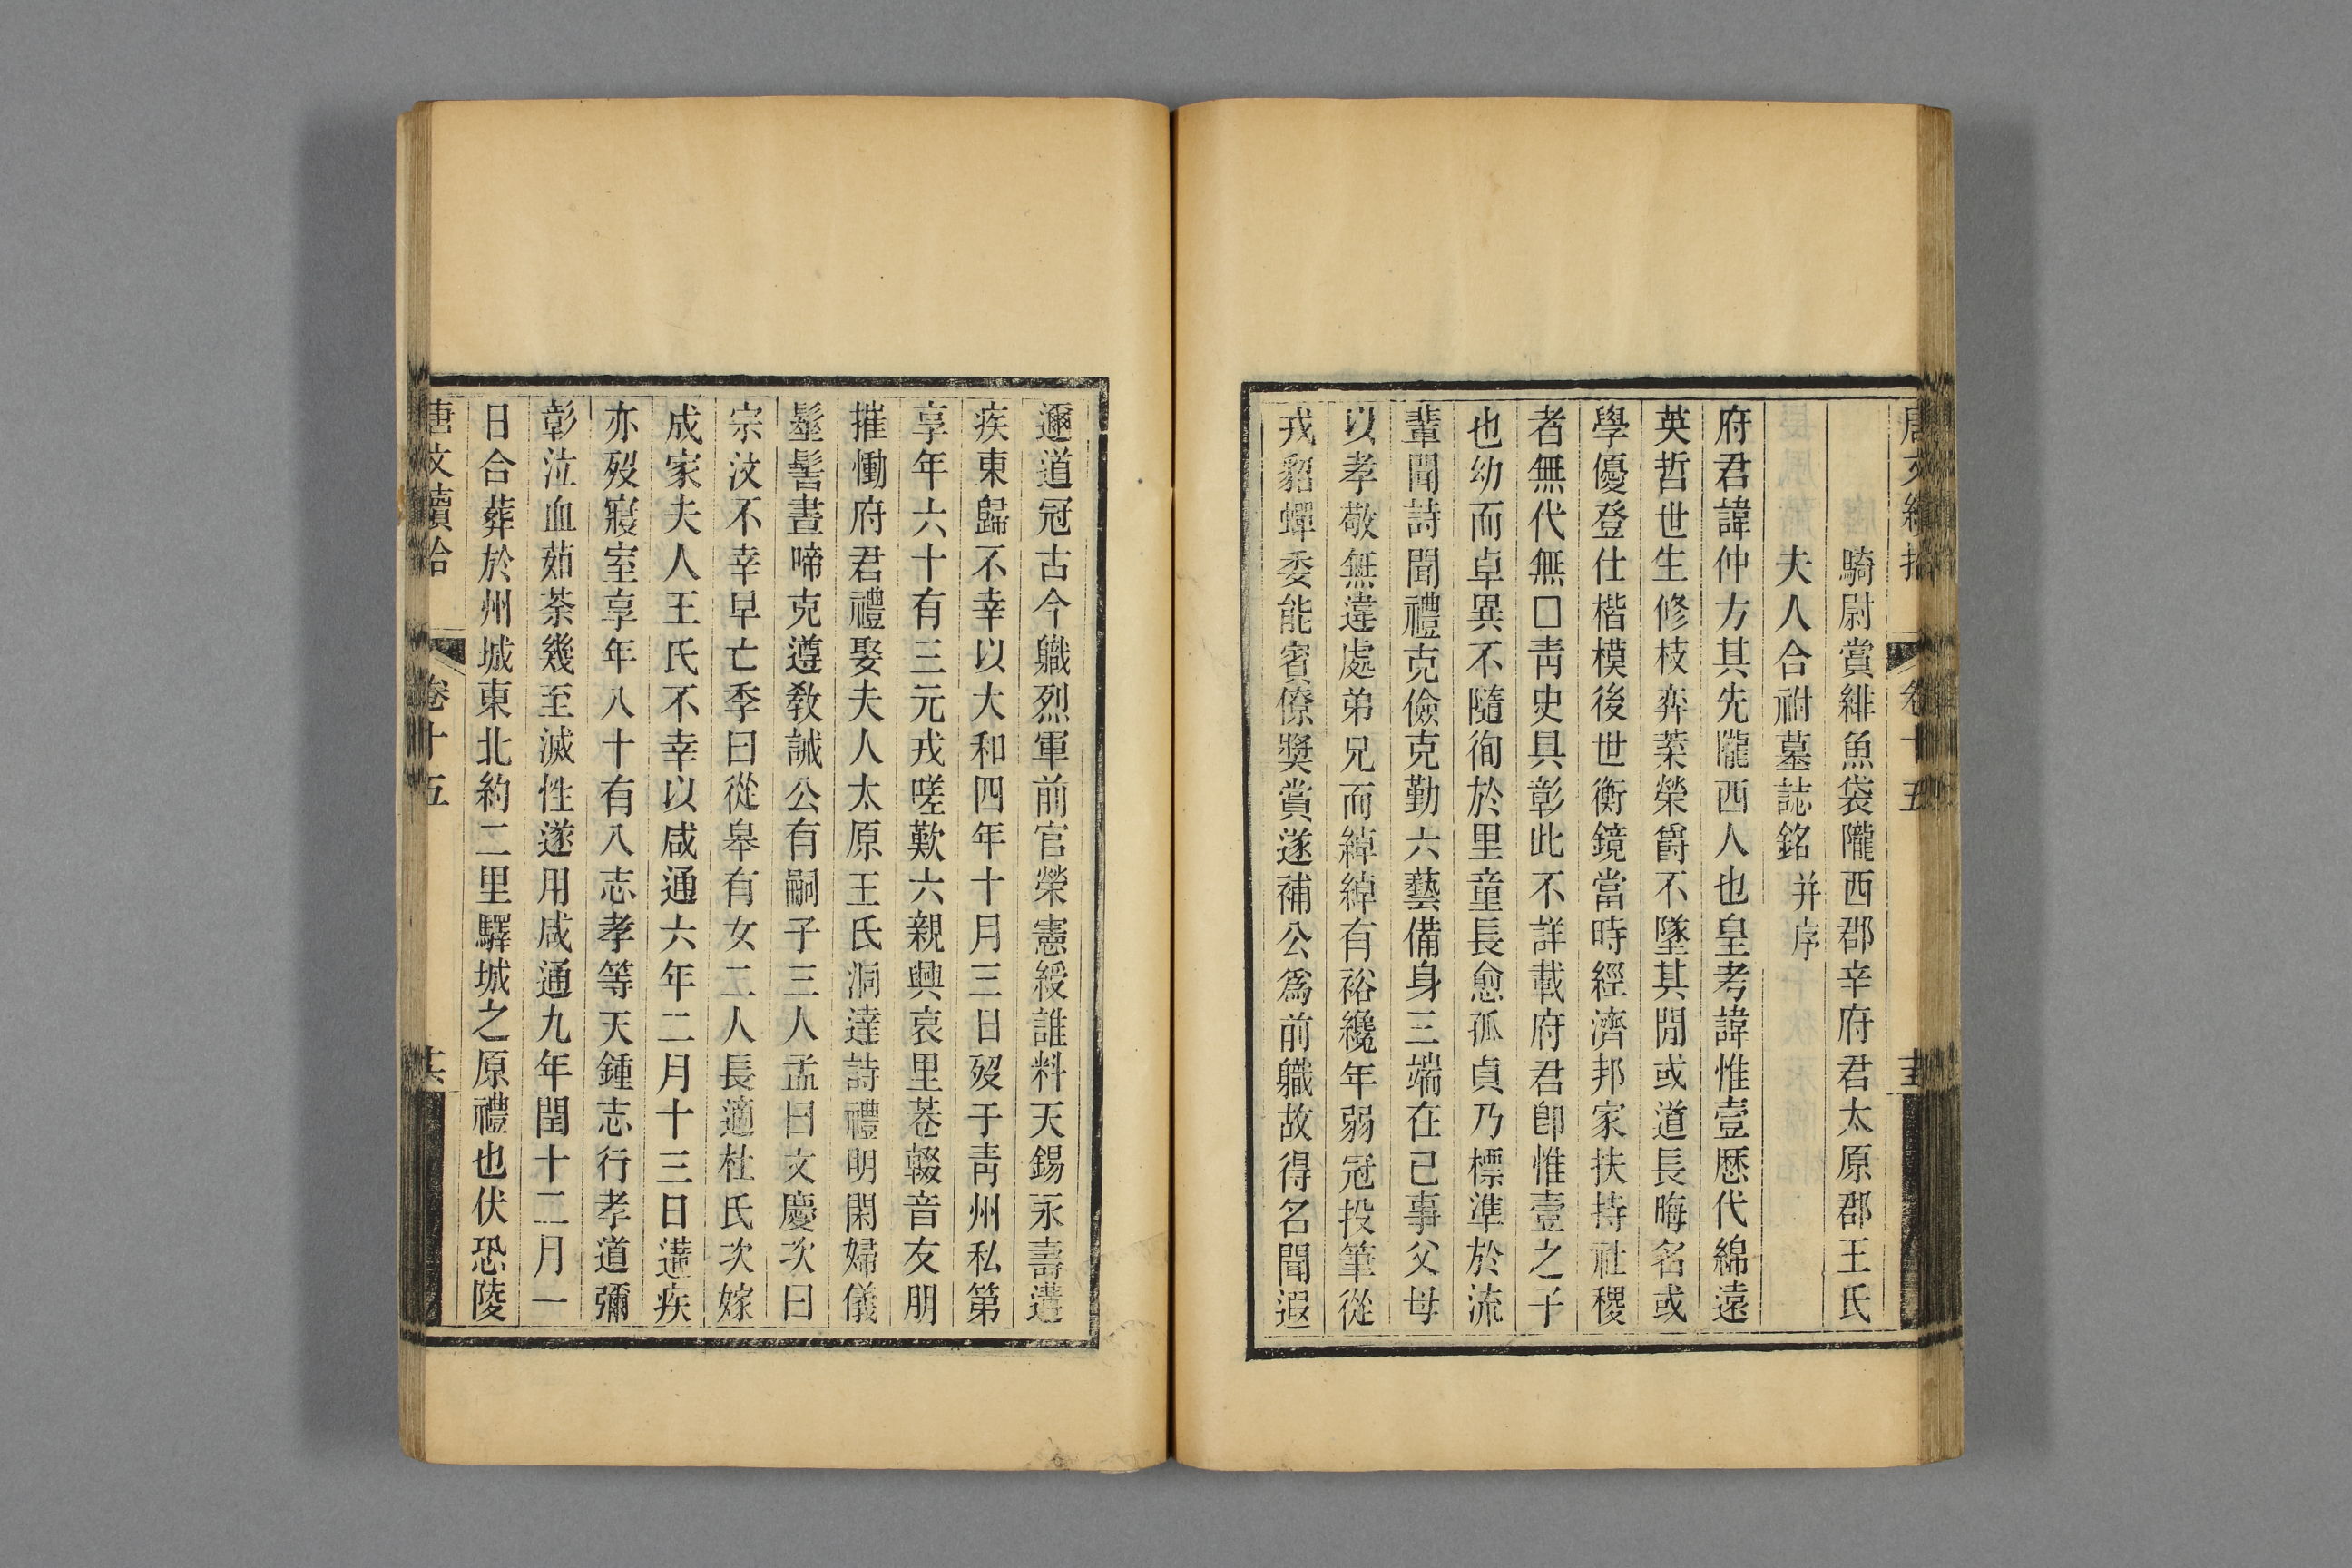 騎尉賞緋魚袋隴西郡辛府君太原郡王氏
夫人合祔墓誌銘并序
府君諱仲方其先隴西人也皇考諱惟壹歷代綿遠
英哲世生修枝弈葉榮爵不墜其閒或道長晦名或
學優登仕楷模後世衡鏡當時經濟邦家扶持社稷
者無代無□靑史具彰此不詳載府君卽惟壹之子
也幼而卓異不隨徇於里童長愈孤貞乃標準於流
輩聞詩聞禮克儉克勤六藝備身三端在己事父母
以孝敬無違處弟兄而綽綽有裕纔年弱冠投筆從
戎貂蟬委能賓僚獎賞遂補公爲前職故得名聞遐
邇道冠古今職烈軍前官榮憲綬誰料天錫永壽遘
疾東歸不幸以大和四年十月三日歿于靑州私第
享年六十有三元戎嗟歎六親興哀里巷輟音友朋
摧慟府君禮娶夫人太原王氏洞達詩禮明閑婦儀
髽髻晝啼克遵敎誡公有嗣子三人孟曰文慶次曰
宗汶不幸早亡季曰從皋有女二人長適杜氏次嫁
成家夫人王氏不幸以咸通六年二月十三日遘疾
亦歿寢室享年八十有八志孝等天鍾志行孝道彌
彰泣血茹荼幾至滅性遂用咸通九年閏十二月一
日合葬於州城東北約二里驛城之原禮也伏恐陵
唐文續拾 卷十五